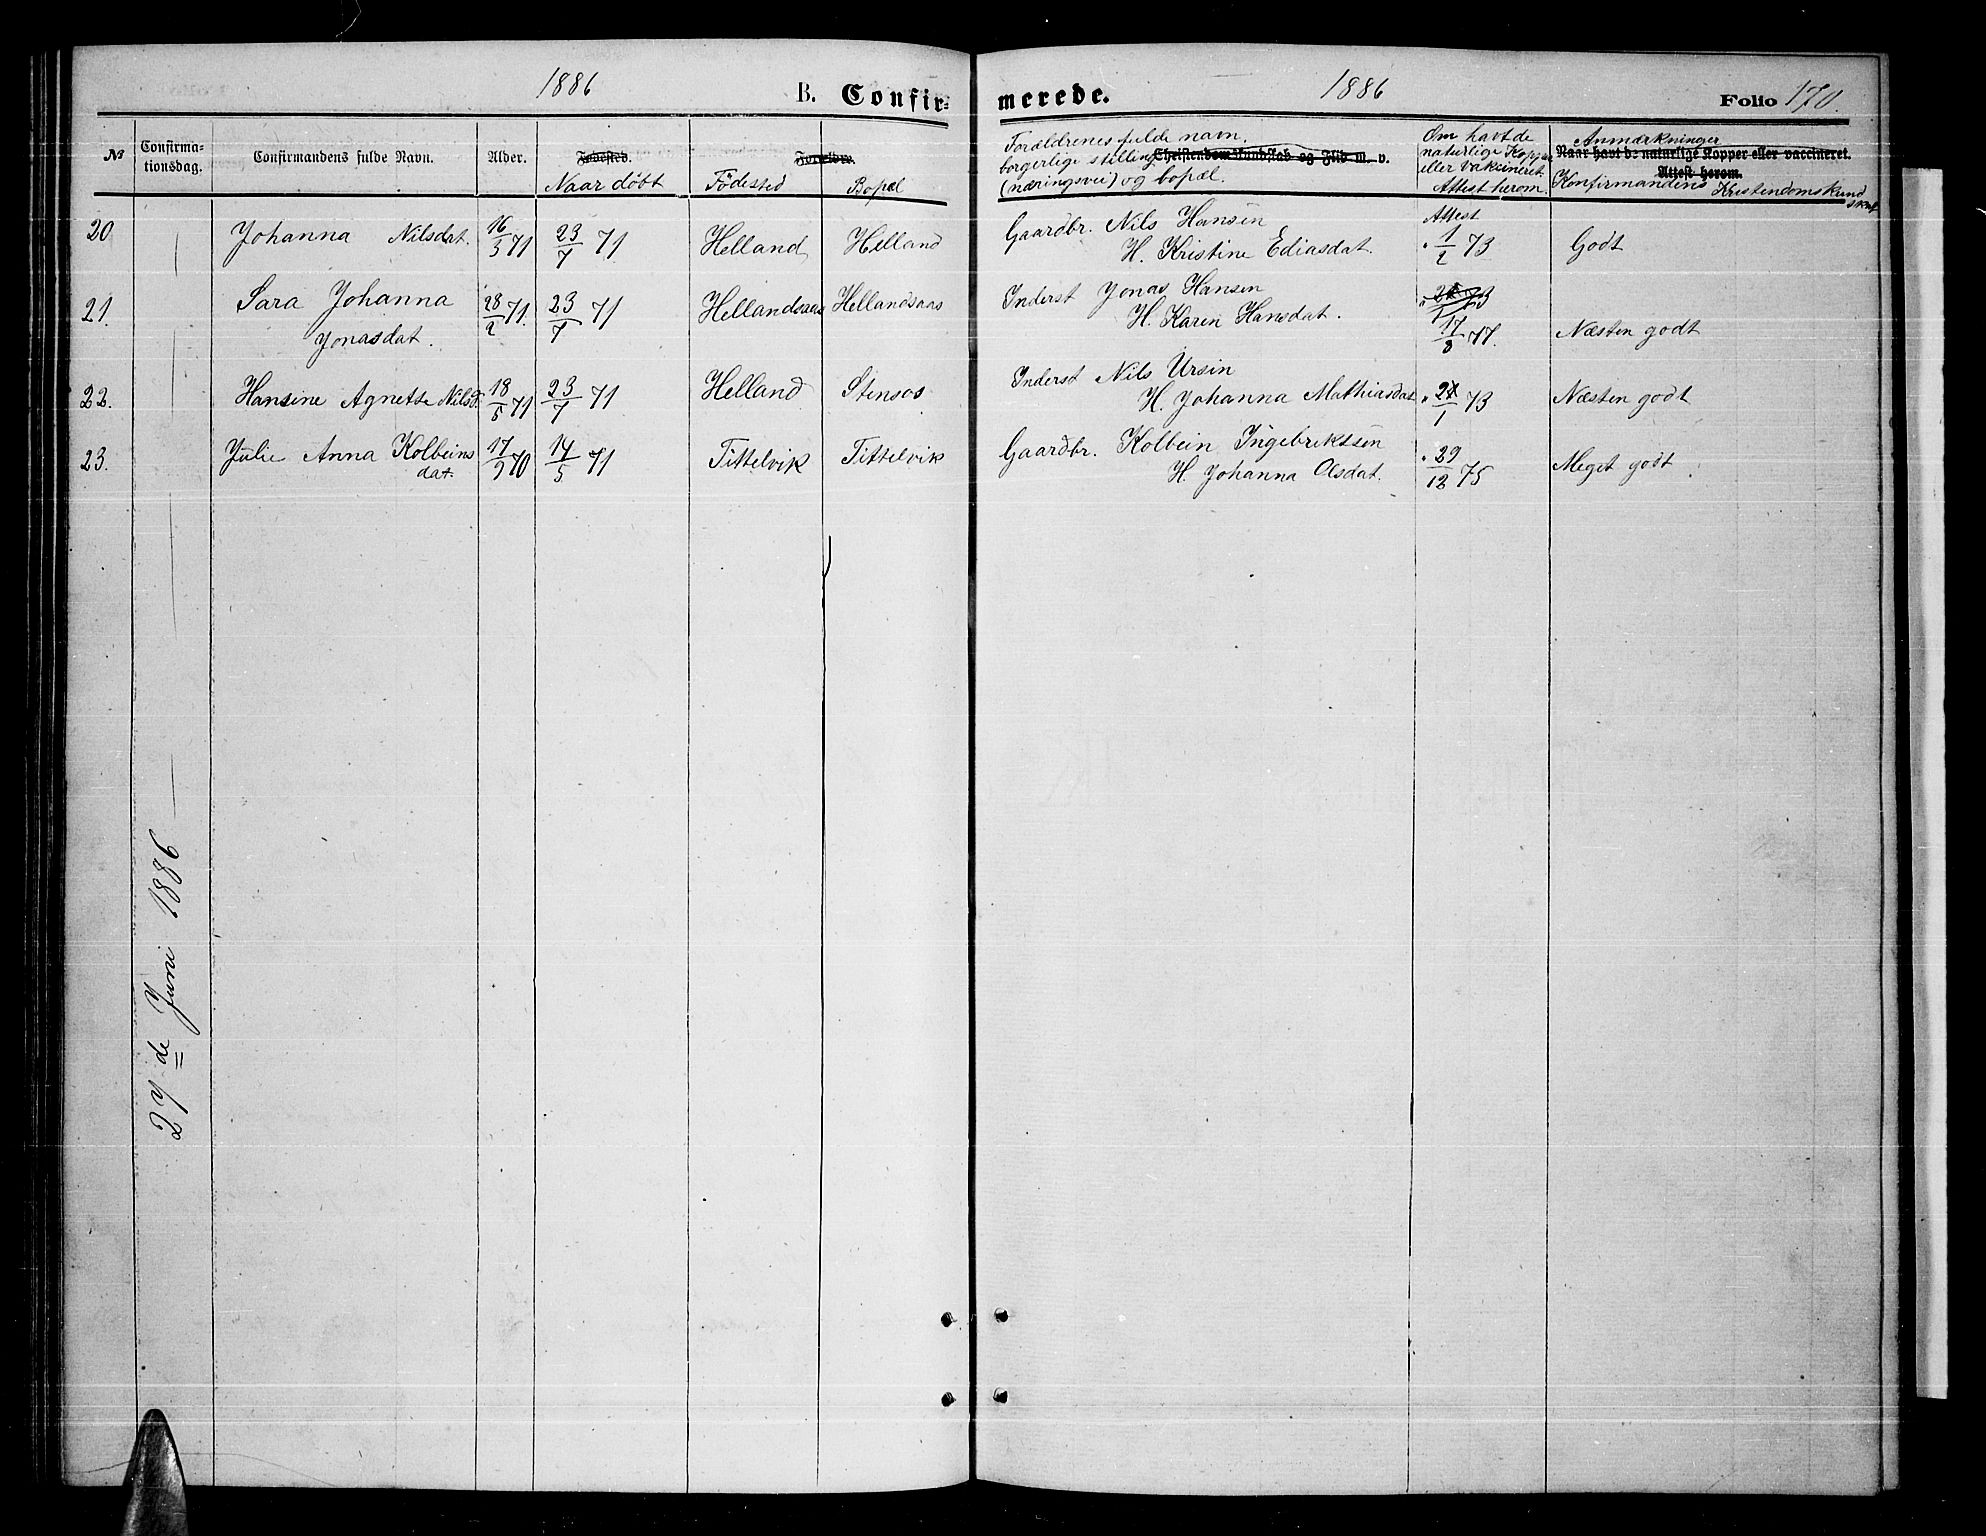 1886 B. Confir= merede. 1886 Folio 170.
No Confirma- tionsdag. Confirmandens fulde Navn. Alder. Fødested. Forældre. Christendomskundskab og Flid m. v. Naar havt de naturlige Kopper eller vaccineret. Attest herom.
Naar döbt Födested Bopæl
Forældrenes fulde navn,
borgerlige stilling
(næringsvei) og bopæl.
Om havt de
naturlige Kopper
eller Vaksineret
Attest herom
Anmærkninger
Konfirmandens Kristendomskund
skab
20 Johanna Nilsdat. 16/3 71 23/7 71 Helland Helland Gaardbr. Nils Hansen Attest
H. Kristine Ediasdat. " 1/2 73 Godt
21. Sara Johanna 28/2 71. 23/7 71 Hellandsaas Hellandsaas Inderst Jonas Hansen
Jonasdat. H. Karin Hansdat. 17/8 77. Næsten godt
22. Hansine Agnette Nilsd. 18/5 71 23/7 71 Helland Stensos Inderst Nils Ursin
H. Johanna Mathiasdat " 21/1 73 Næsten godt
23. Julie Anna Kolbeins 17/9 70 14/5 71 Tittelvik Tittelvik Gaardbr. Kolbein Ingebriktsen
dat. H. Johanna Olsdat. " 29/12 75 Meget godt
27de Juni 1886